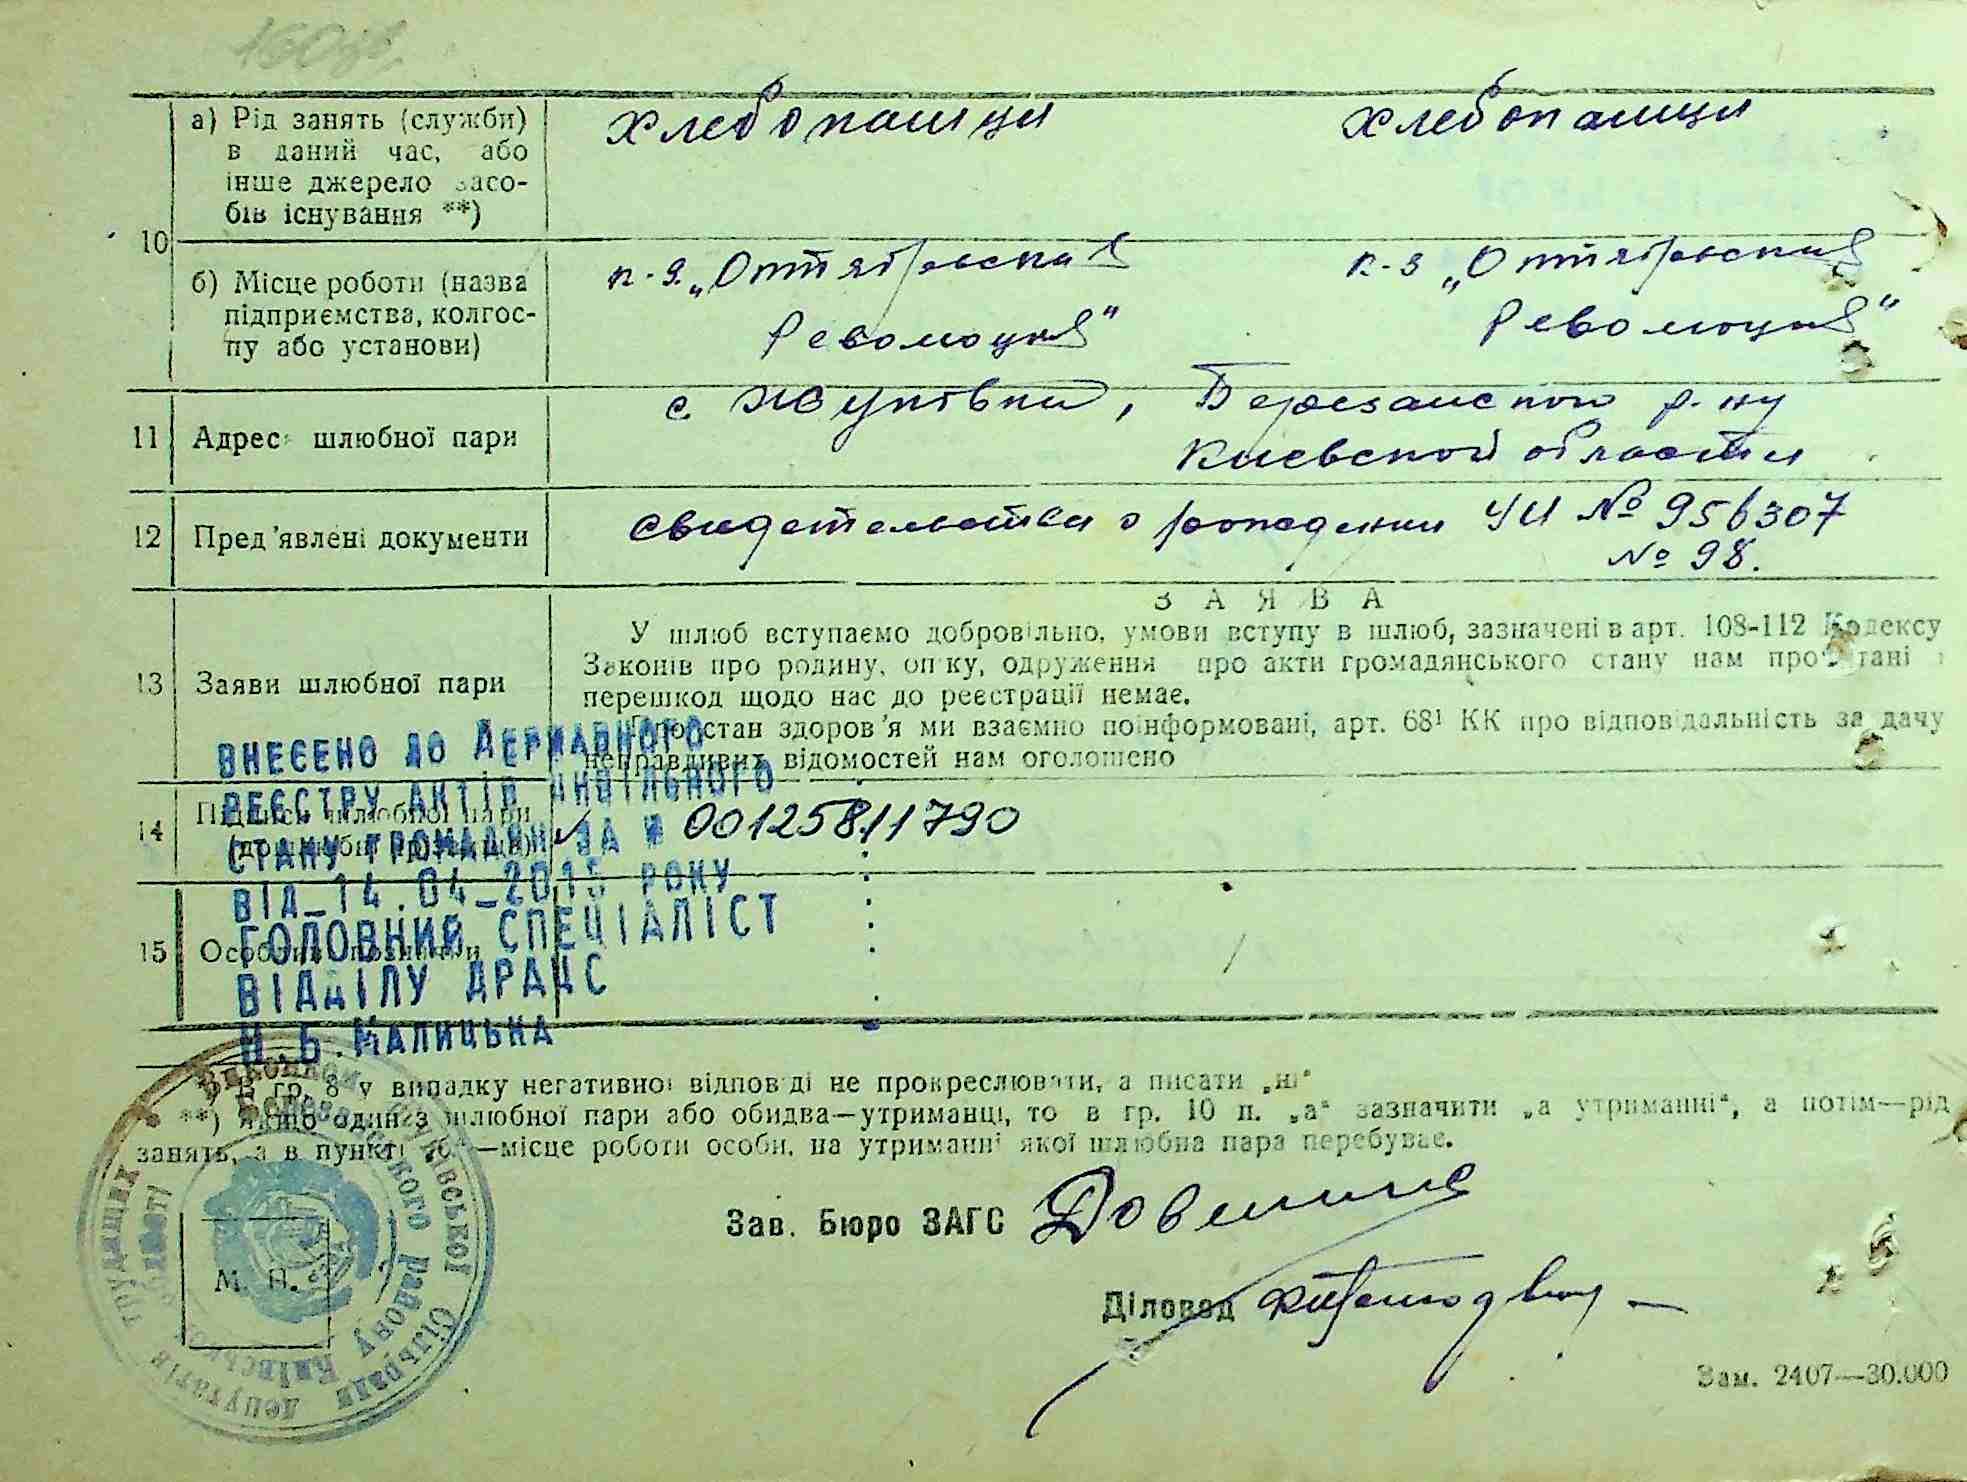 160зв.
10
а) Рід занять (служби)
в даний час, або
інше джерело засо-
бів існування **)
хлебопашци
хлебопашци
б) Місце роботи (назва
підприємства, колгос-
пу або установи)
к-з. „Октябрьская
Революция"
к-з „Октябрьская
Революция"
11
Адреса шлюбної пари
с. Жуківка, Березанского р-ну
Киевской области
12
Пред'явлені документи
свидетельства о рождении УЦ № 956307
№ 98.
13
Заяви шлюбної пари
ЗАЯВА
У шлюб вступаємо добровільно, умови вступу в шлюб, зазначені в арт. 108-112 Кодексу
Законів про родину, опіку, одруження про акти громадянського стану нам прочитані і
перешкод щодо нас до реєстрації немає.
Про стан здоров'я ми взаємно поінформовані, арт. 68¹ КК про відповідальність за дачу
неправдивих відомостей нам оголошено
14
Підписи шлюбної пари
15
Особливі позначки
ВНЕСЕНО ДО ДЕРЖАВНОГО
РЕЄСТРУ АКТІВ ЦИВІЛЬНОГО
СТАНУ ГРОМАДЯН ЗА № 00125811790
ВІД_14.04_2015 РОКУ
ГОЛОВНИЙ СПЕЦІАЛІСТ
ВІДДІЛУ ДРАЦС
Н.Б.МАЛИЦЬКА
*) В гр. 8 у випадку негативної відповіді не прокреслювати, а писати „ні"
**) Якщо один з шлюбної пари або обидва—утриманці, то в гр. 10 п. „а" зазначити „а утриманні", а потім—рід
занять, а в пункті „б"—місце роботи особи, на утриманні якої шлюбна пара перебуває.
Зав. Бюро ЗАГС
Діловод
М. П.
Виконком
сільради депутатів трудящих
району Київської області
Зам. 2407—30.000